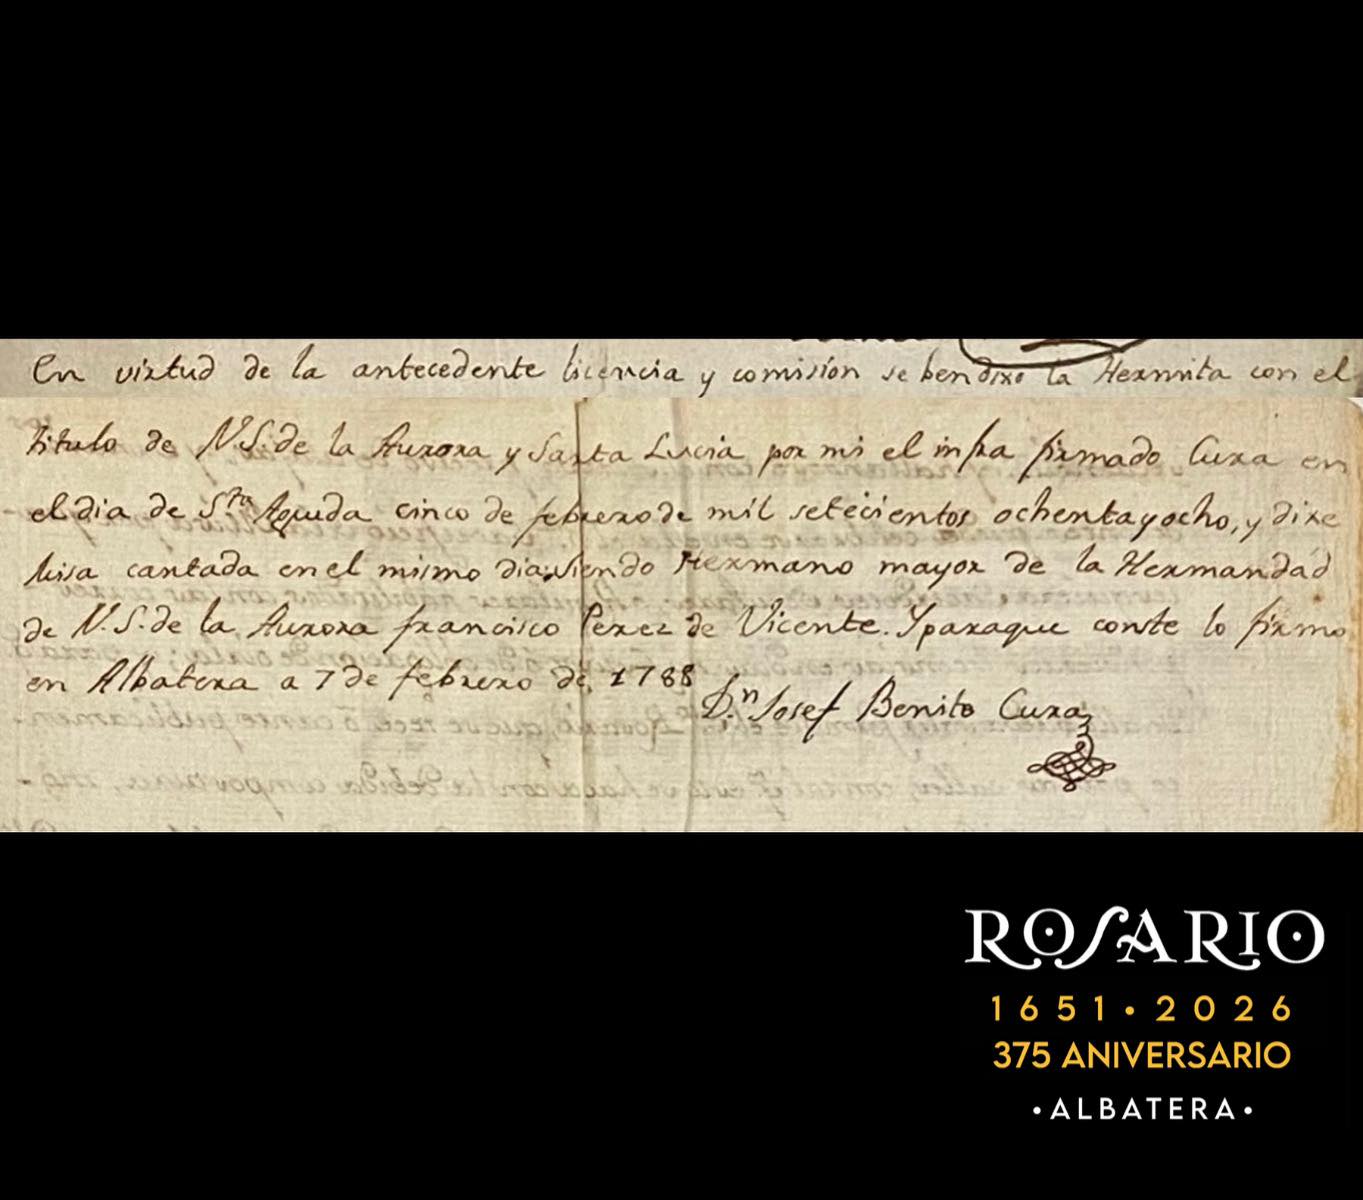 En virtud de la antecedente licencia y comisión se bendixo la Hermita con el
titulo de N. S. de la Aurora y Santa Lucia por mi el infra firmado Cura en
el dia de S.ta Agueda cinco de febrero de mil setecientos ochenta y ocho, y dixe
Misa cantada en el mismo dia, siendo Hermano mayor de la Hermandad
de N. S. de la Aurora francisco Perez de Vicente. Y para que conste lo firmo
en Albatera a 7 de febrero de 1788
D.n Josef Benito Cura
ROSARIO
1651 • 2026
375 ANIVERSARIO
• ALBATERA •